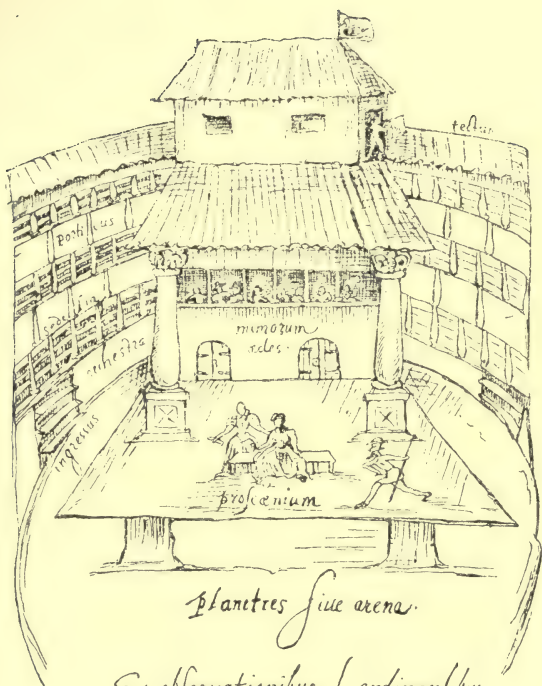 tectum
porticus
sedilia
orchestra
mimorum
ædes.
ingressus
proscænium
planities siue arena.
Ex obseruationibus Londinensibus